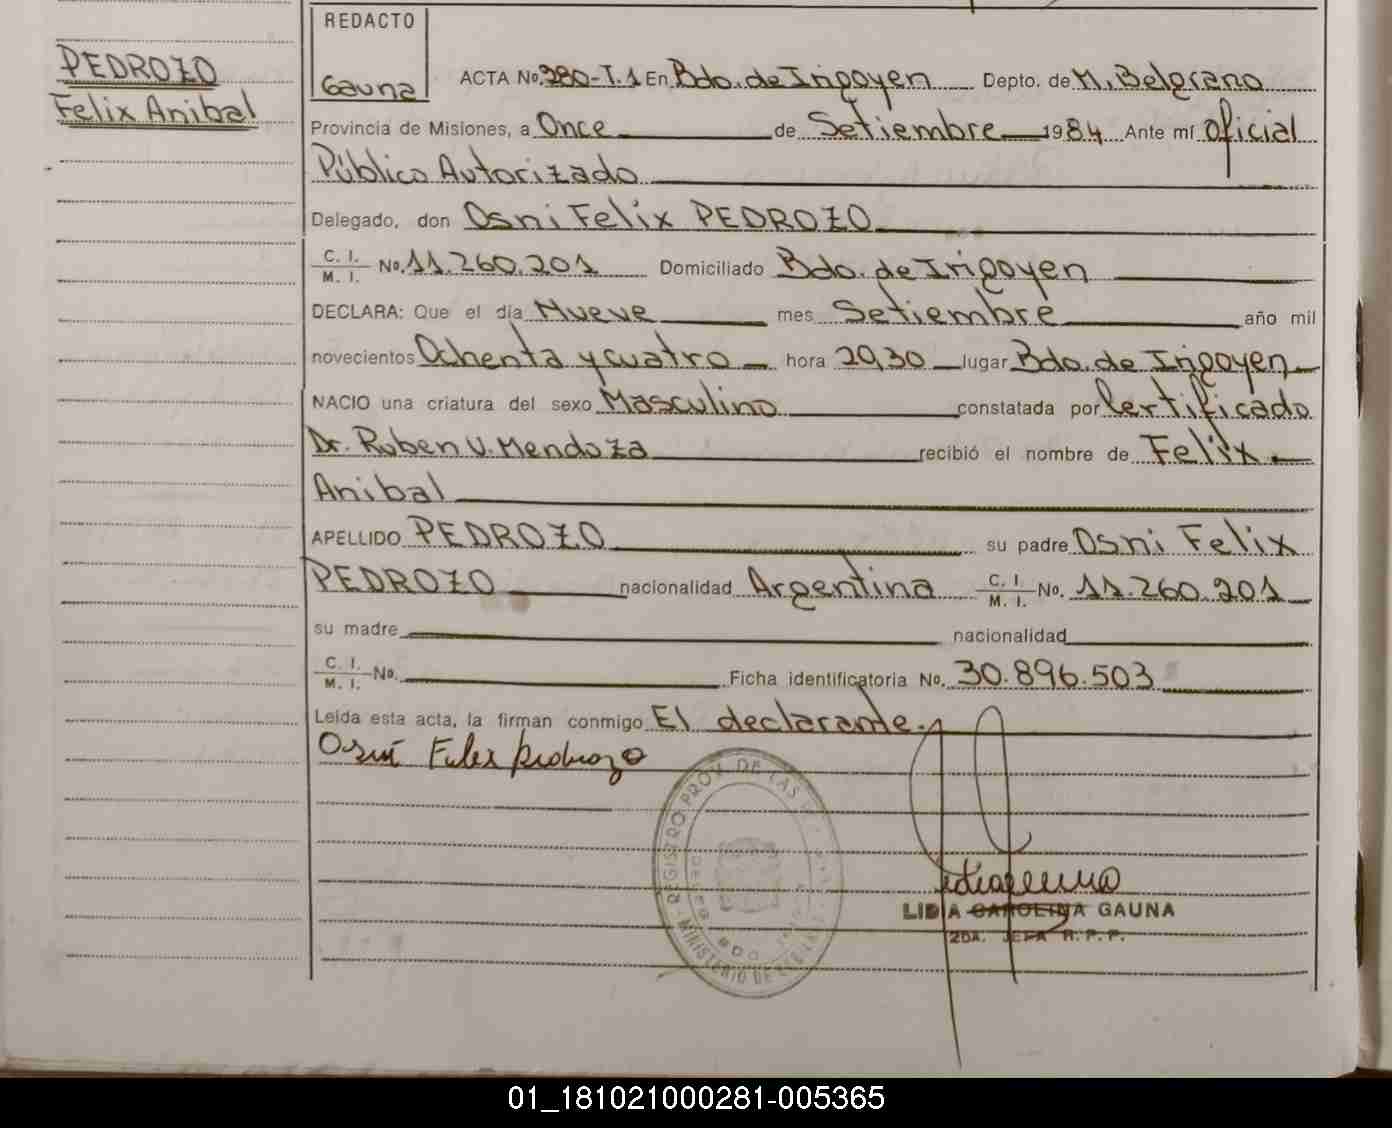 PEDROZO
Felix Anibal
REDACTO
Gauna
ACTA No. 280-T.1 En Bdo. de Irigoyen Depto. de M. Belgrano
Provincia de Misiones, a Once de Setiembre 1984 Ante mí Oficial
Público Autorizado
Delegado, don Osni Felix PEDROZO
C. I. / M. I. No. 11.260.201 Domiciliado Bdo. de Irigoyen
DECLARA: Que el día Nueve mes Setiembre año mil
novecientos Ochenta y cuatro hora 20,30 lugar Bdo. de Irigoyen
NACIO una criatura del sexo Masculino constatada por Certificado
Dr. Ruben V. Mendoza recibió el nombre de Felix
Anibal
APELLIDO PEDROZO su padre Osni Felix
PEDROZO nacionalidad Argentina C. I. / M. I. No. 11.260.201
su madre nacionalidad
C. I. / M. I. No. Ficha identificatoria No. 30.896.503
Leída esta acta, la firman conmigo El declarante.
Osni Felix Pedrozo
REGISTRO PROV. DE LAS
MINISTERIO DE
LIDIA CAROLINA GAUNA
2DA. JEFA R.P.P.
01_181021000281-005365